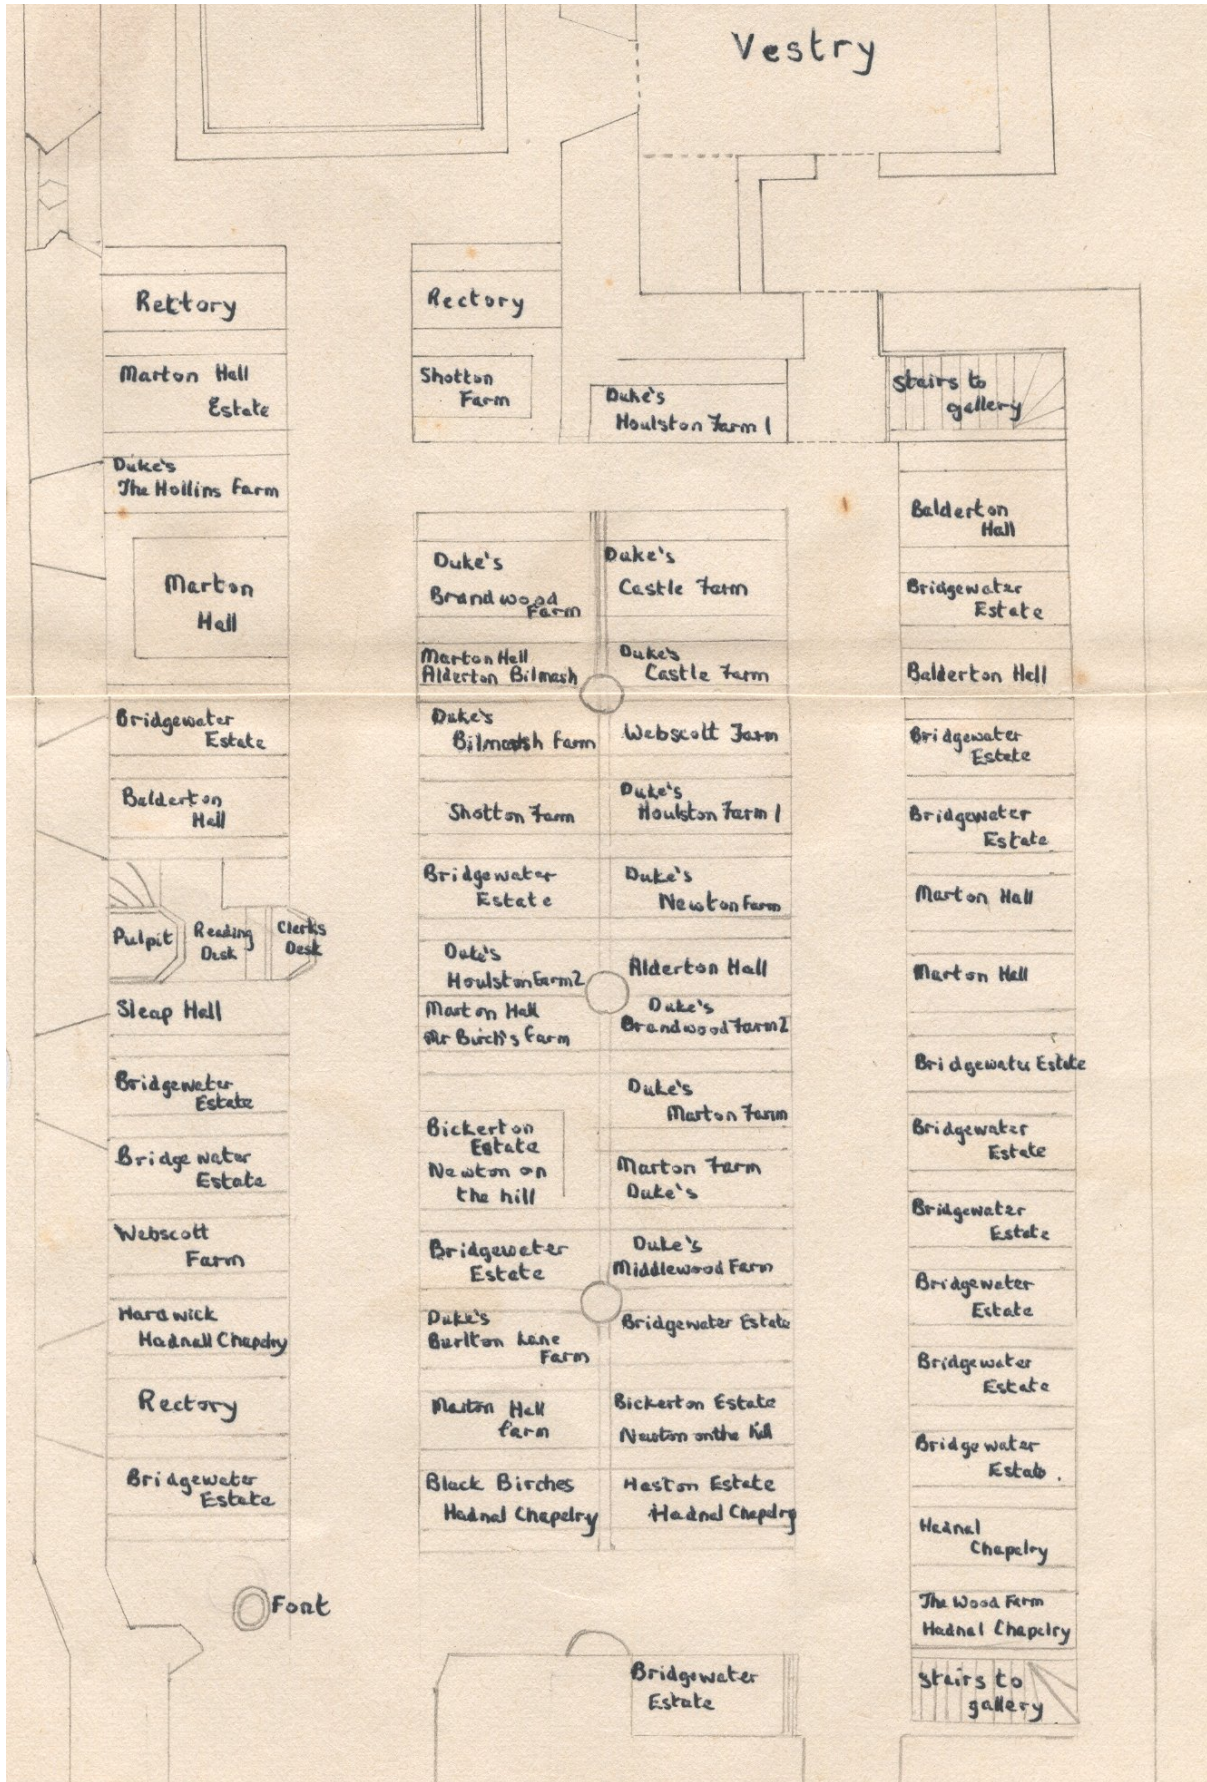 Vestry
Rectory
Marton Hall
Estate
Duke's
The Hollins Farm
Marton
Hall
Bridgewater
Estate
Balderton
Hall
Pulpit
Reading
Desk
Clerk's
Desk
Sleap Hall
Bridgewater
Estate
Bridgewater
Estate
Webscott
Farm
Hardwick
Hadnall Chapelry
Rectory
Bridgewater
Estate
Font
Rectory
Shotton
Farm
Duke's
Houlston Farm 1
Duke's
Brandwood
Farm
Marton Hall
Alderton Bilmash
Duke's
Bilmarsh Farm
Shotton Farm
Bridgewater
Estate
Duke's
Houlston Farm 2
Marton Hall
Mr Birch's Farm
Bickerton
Estate
Newton on
the hill
Bridgewater
Estate
Duke's
Burlton Lane
Farm
Marton Hall
farm
Black Birches
Hadnal Chapelry
Duke's
Castle Farm
Duke's
Castle Farm
Webscott Farm
Duke's
Houlston Farm 1
Duke's
Newton Farm
Alderton Hall
Duke's
Brandwood Farm 2
Duke's
Marton Farm
Marton Farm
Duke's
Duke's
Middlewood Farm
Bridgewater Estate
Bickerton Estate
Newton on the hill
Haston Estate
Hadnal Chapelry
Bridgewater
Estate
Stairs to
gallery
Balderton
Hall
Bridgewater
Estate
Balderton Hall
Bridgewater
Estate
Bridgewater
Estate
Marton Hall
Marton Hall
Bridgewater Estate
Bridgewater
Estate
Bridgewater
Estate
Bridgewater
Estate
Bridgewater
Estate
Bridgewater
Estate.
Hadnal
Chapelry
The Wood Farm
Hadnal Chapelry
Stairs to
gallery